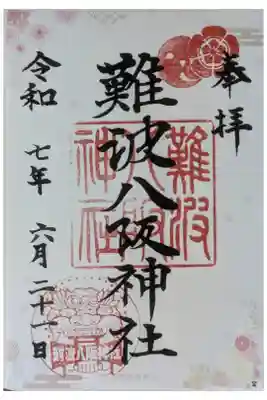 奉拝
難波八阪神社
難波八阪神社
令和七年六月二十一日